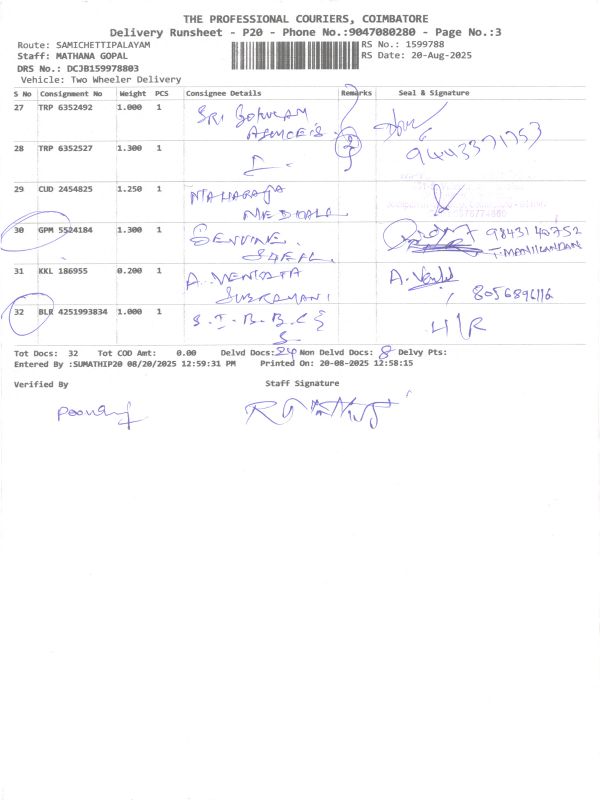 THE PROFESSIONAL COURIERS, COIMBATORE
Delivery Runsheet - P20 - Phone No.:9047080280 - Page No.:3
Route: SAMICHETTIPALAYAM RS No.: 1599788
Staff: MATHANA GOPAL RS Date: 20-Aug-2025
DRS No.: DCJB159978803
Vehicle: Two Wheeler Delivery
S No Consignment No Weight PCS Consignee Details Remarks Seal & Signature
27 TRP 6352492 1.000 1 SRI
28 TRP 6352527 1.300 1 9443371753
29 CUD 2454825 1.250 1 MAHARAJA
30 GPM 5524184 1.300 1 GENUINE 9843140752
T. MANIKANDAN
31 KKL 186955 0.200 1 A. VENKATA
SUBRAMANI 8056896116
32 BLR 4251993834 1.000 1 S.I.B.B.C H/R
S
Tot Docs: 32 Tot COD Amt: 0.00 Delvd Docs:24 Non Delvd Docs: 8 Delvy Pts:
Entered By :SUMATHIP20 08/20/2025 12:59:31 PM Printed On: 20-08-2025 12:58:15
Verified By Staff Signature